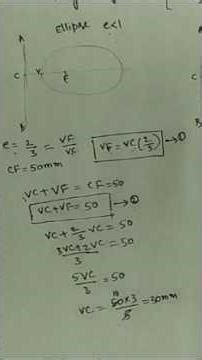 Ellipse e<1
A
C V F
B
e = 2/3 = VF/VF
VF = VC(2/3) → ①
CF = 50mm
VC + VF = CF = 50
VC + VF = 50 → ②
VC + 2/3 VC = 50
3VC + 2VC / 3 = 50
5VC / 3 = 50
VC = 50×3 / 5 = 30mm
10